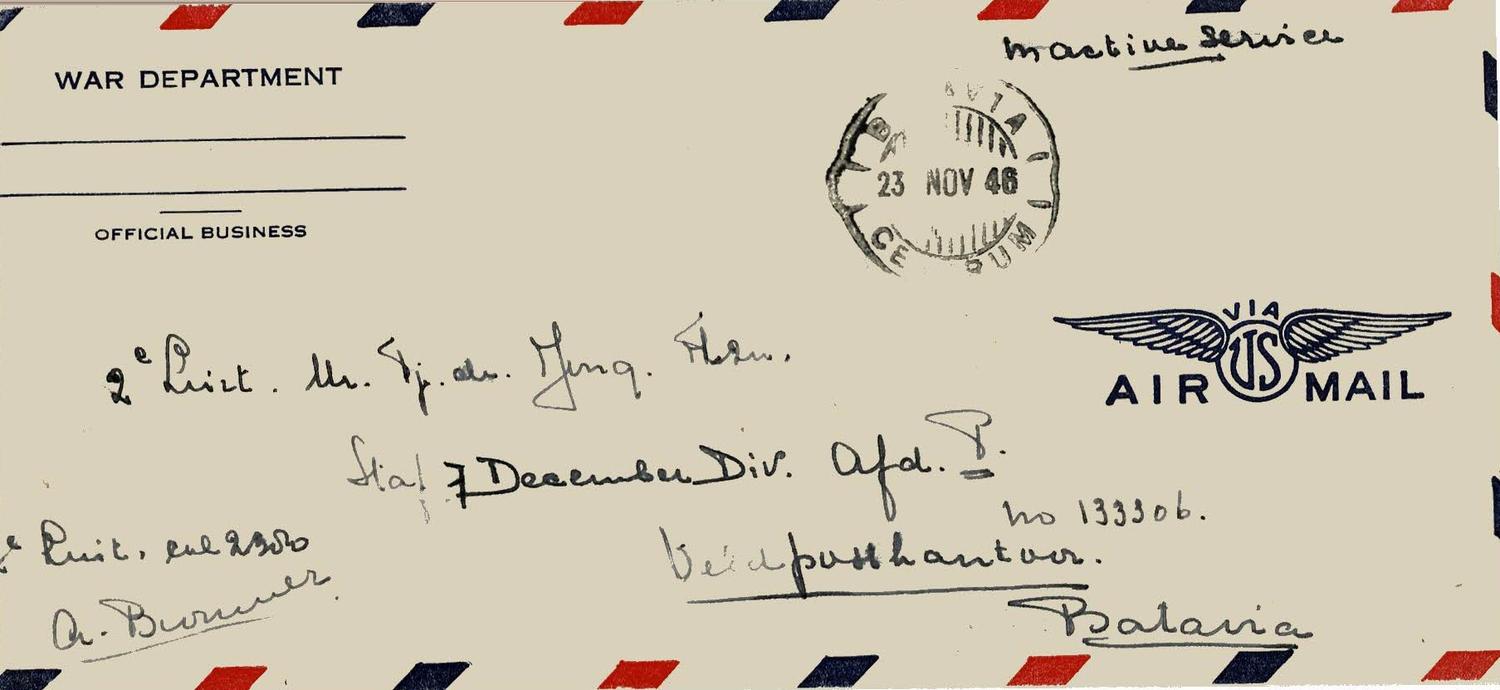 WAR DEPARTMENT
OFFICIAL BUSINESS
In active Service
23 NOV 46
CE RUM
VIA
US
AIR MAIL
2e Luit. Mr. Tj. de Jong. Hzn.
Staf 7 December Div. Afd. P.
no 133306.
Veldpostkantoor.
Batavia
Luit.
A.